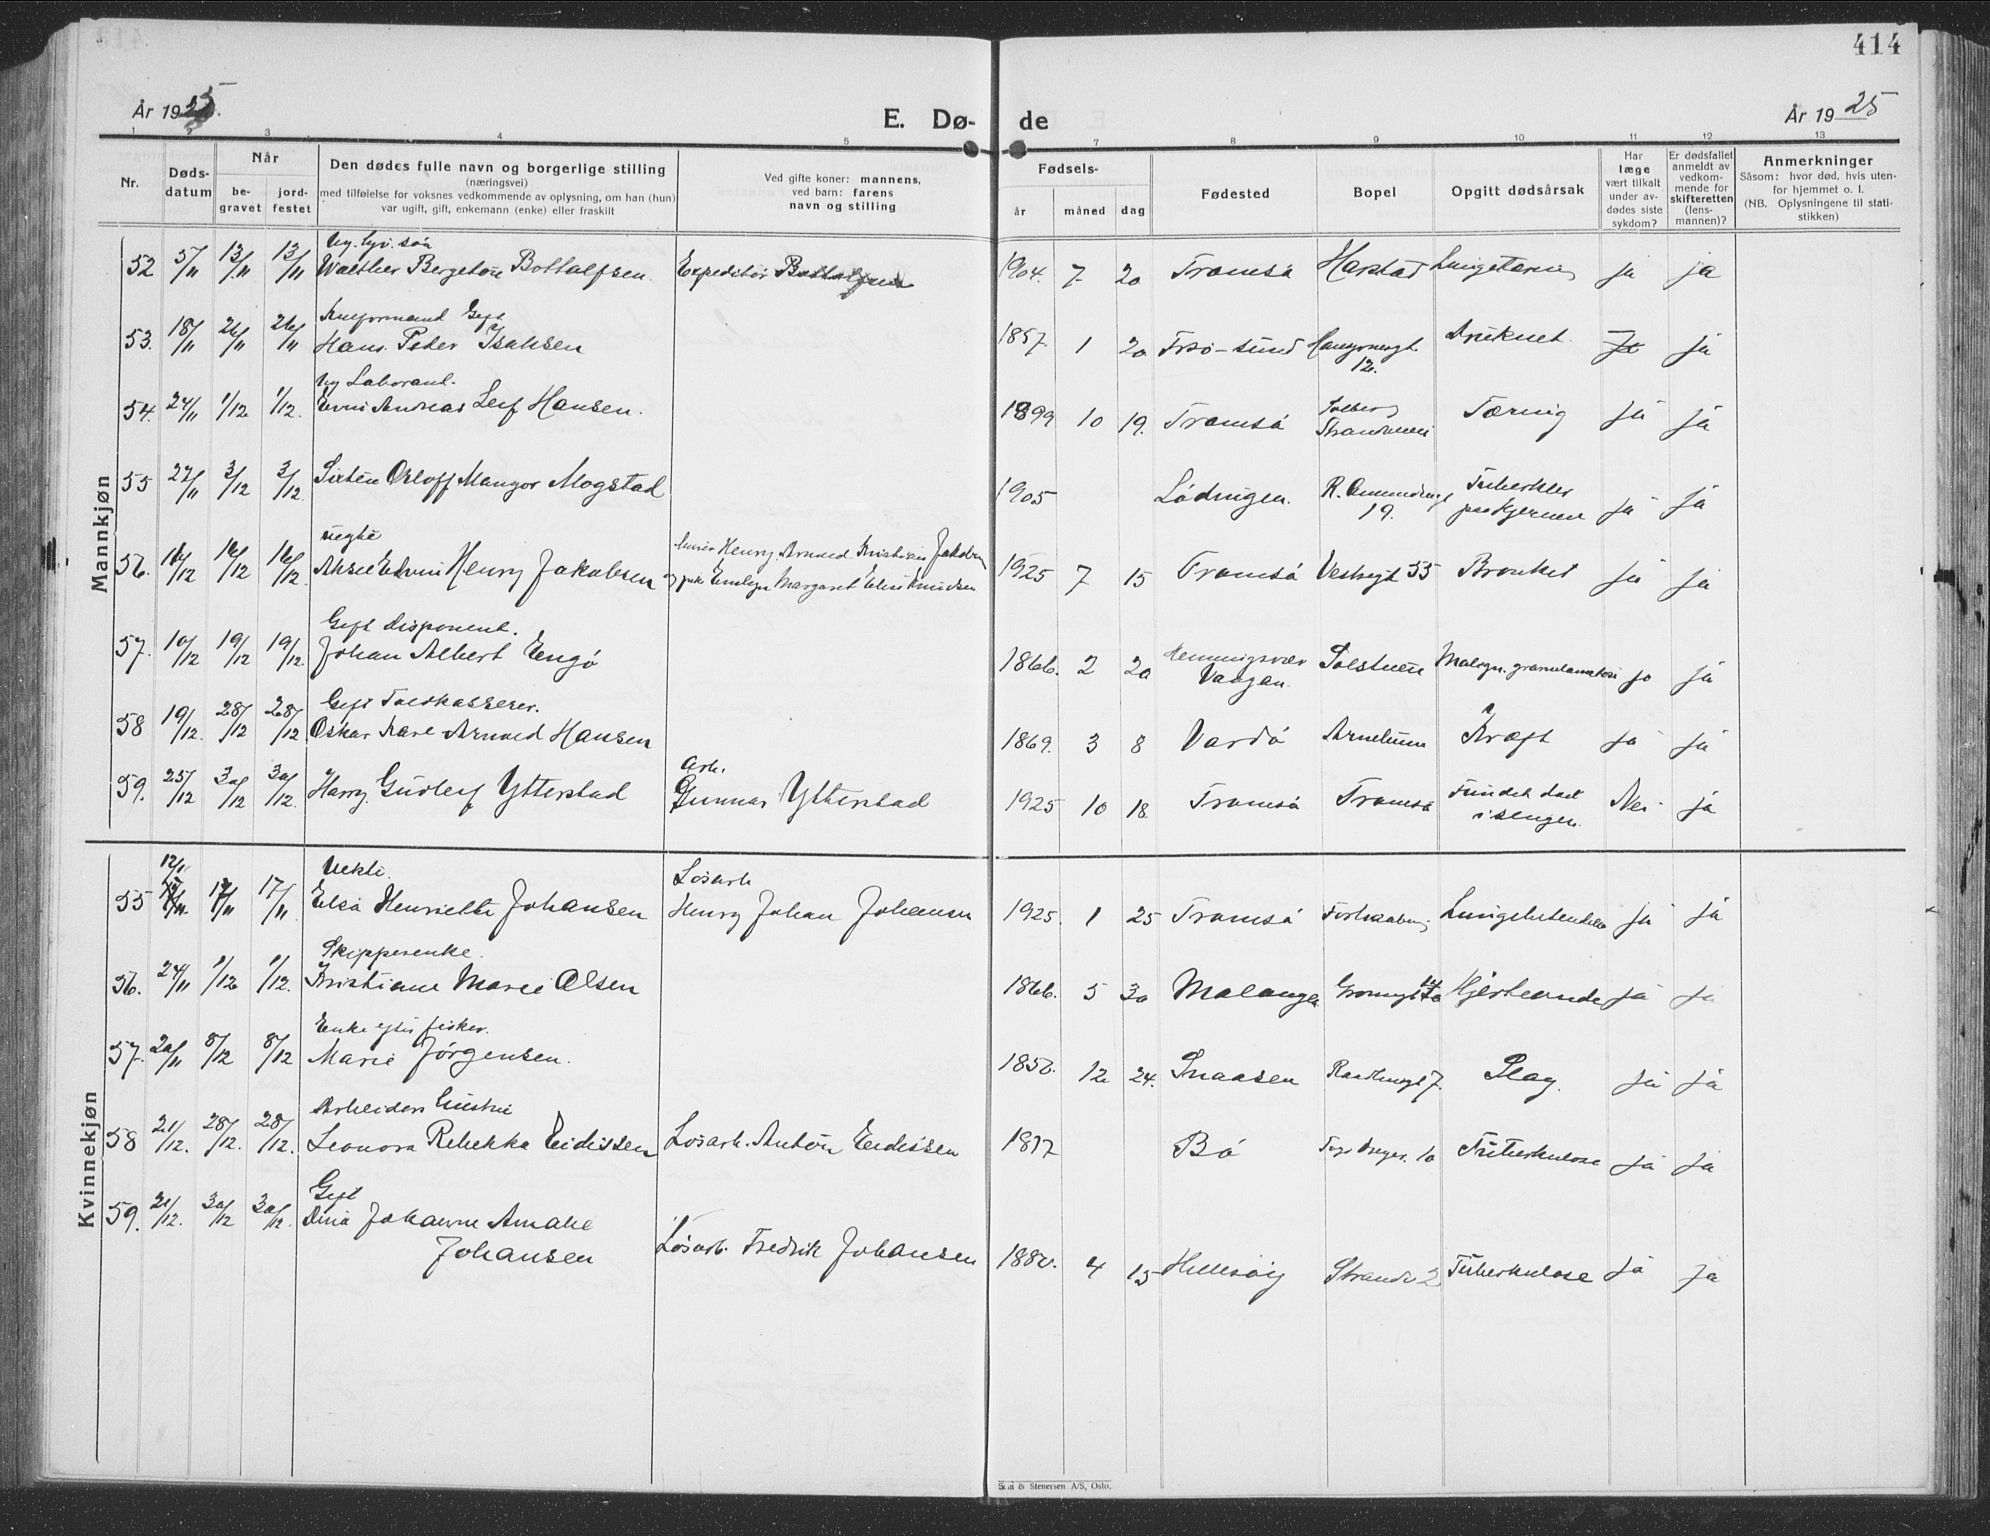 414
År 1925.
E. Dø-
de
År 1925
1 3 4 5 7 8 9 10 11 12 13
Nr.
Døds-
datum
Når
be-
gravet
jord-
festet
Den dødes fulle navn og borgerlige stilling
(næringsvei)
med tilføielse for voksnes vedkommende av oplysning, om han (hun)
var ugift, gift, enkemann (enke) eller fraskilt
Ved gifte koner: mannens,
ved barn: farens
navn og stilling
Fødsels-
år
måned
dag
Fødested
Bopel
Opgitt dødsårsak
Har
læge
vært tilkalt
under av-
dødes siste
sykdom?
Er dødsfallet
anmeldt av
vedkom-
mende for
skifteretten
(lens-
mannen)?
Anmerkninger
Såsom: hvor død, hvis uten-
for hjemmet o. l.
(NB. Oplysningene til stati-
stikken)
Mannkjøn
52 5/11 13/11 13/11 Walther Bergeton Bottolfsen. Expeditør Bottolfsen 1904. 7 20 Tromsø Harstad ja ja
Gift
53. 18/11 26/11 26/11 Hans Peder Isaksen 1857 1 20 12. Druknet ja ja
Ug Laborant.
54. 24/11 1/12 1/12. Andreas Leif Hansen. 1899 10 19. Tromsø Solberg Tæring ja ja
55 27/11 3/12 3/12. Sixten Orloff Mangor Mogstad 1905 Lødingen. R. Amundsensgt 19. ja ja
uegte
56. 10/12 16/12 16/12. Henry Jakobsen Henry Arnved Kristian Jakobsen
Emelyn Margaret Elise Knudsen 1925 7 15 Tromsø Vestregt 55 Bronkit ja ja
Gift disponent.
57. 10/12 19/12 19/12. Johan Albert Engø 1866. 2 20 Henningsvær
Vaagan. Solstuen Malign. granulomatose ja ja
Gift Toldkasserer.
58 19/12. 28/12 28/12 Oskar Kare Arnved Hansen 1869. 3 8 Vardø Kræft ja ja
Arb.
59. 25/12 30/12 30/12. Harry Gudleif Ytterstad Gunnar Ytterstad 1925 10 18. Tromsø Tromsø Fundet død
i sengen. Nei ja
Kvinnekjøn
Uekte. Løsarb
55 12/11 17/11 17/11 Elsa Henriette Johansen Henry Johan Johansen 1925. 1 25 Tromsø ja ja
Skipperenke.
56. 24/11 1/12 1/12. Kristiane Marie Olsen 1866. 5 30 Malangen Grønnegt Hjerteonde ja ja
Enke efter fisker.
57. 20/11 8/12 8/12 Marie Jørgensen. 1850. 12 24. Snaasen 7. Slag. ja ja
Arbeiders hustru
58 21/12. 28/12. 28/12. Leonora Rebekka Eidissen Løsarb. Anton Eidissen 1897 Bø 10 Tuberkulose ja ja
Gift
59. 21/12. 30/12 30/12. Dina Johanne Amalie
Johansen Løsarb. Fredrik Johansen 1880. 4 15 Hillesøy Strandv. 2 Tuberkulose ja ja
& Stenersen A/S, Oslo.